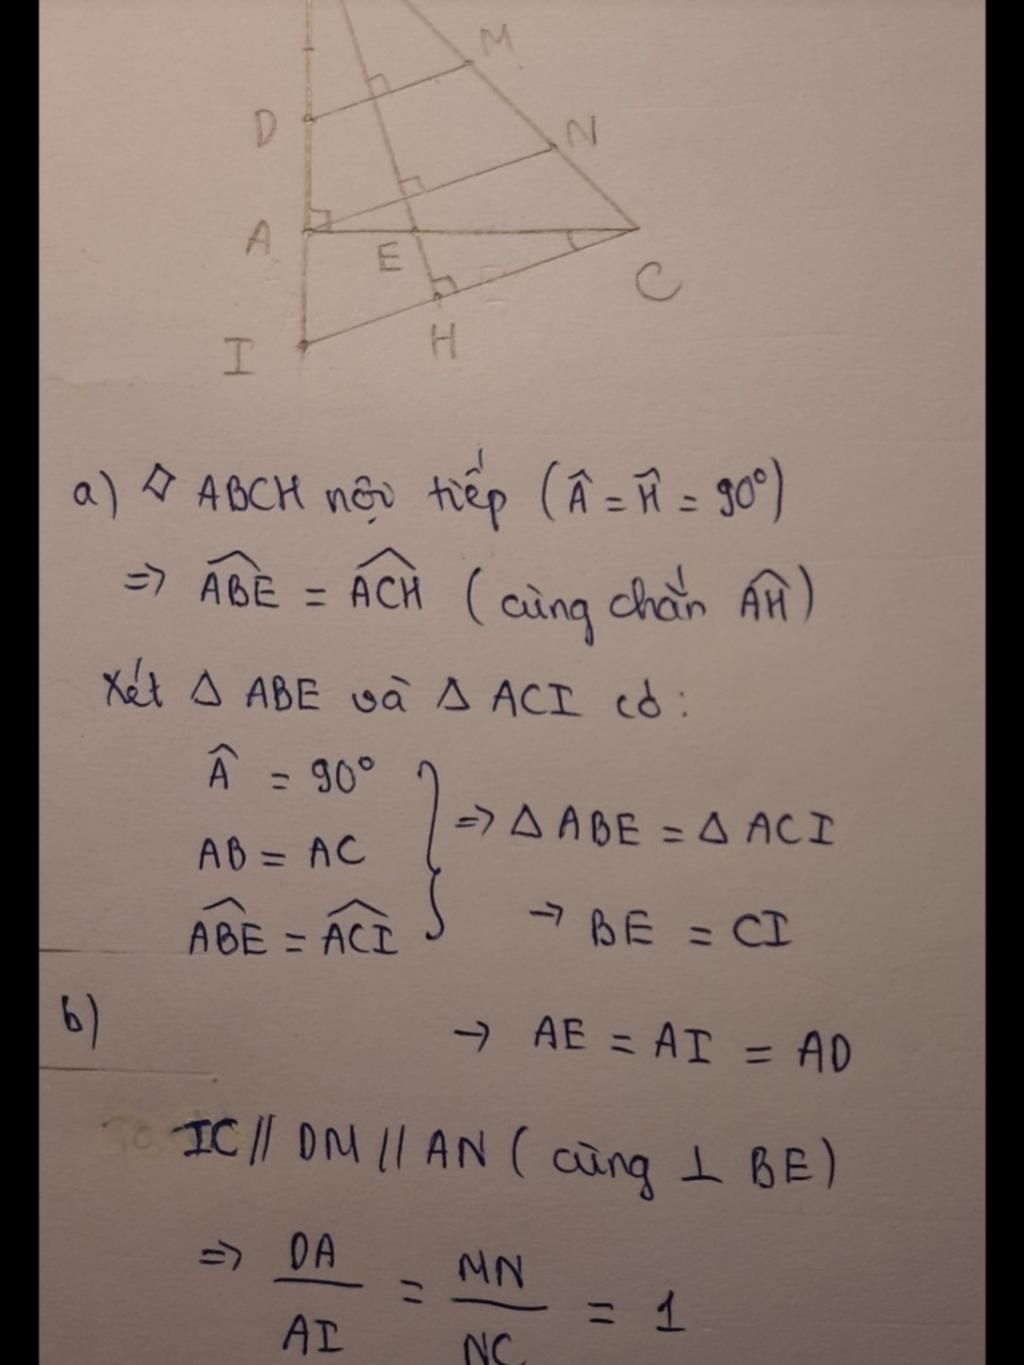 M
D
N
A
E
C
I
H
a) ◇ ABCH nội tiếp (Â = Ĥ = 90°)
=> ABE^ = ACH^ (cùng chắn AH^)
Xét Δ ABE và Δ ACI có:
Â = 90°
AB = AC => Δ ABE = Δ ACI
ABE^ = ACI^ → BE = CI
b) → AE = AI = AD
IC // DM // AN (cùng ⊥ BE)
=> DA/AI = MN/NC = 1